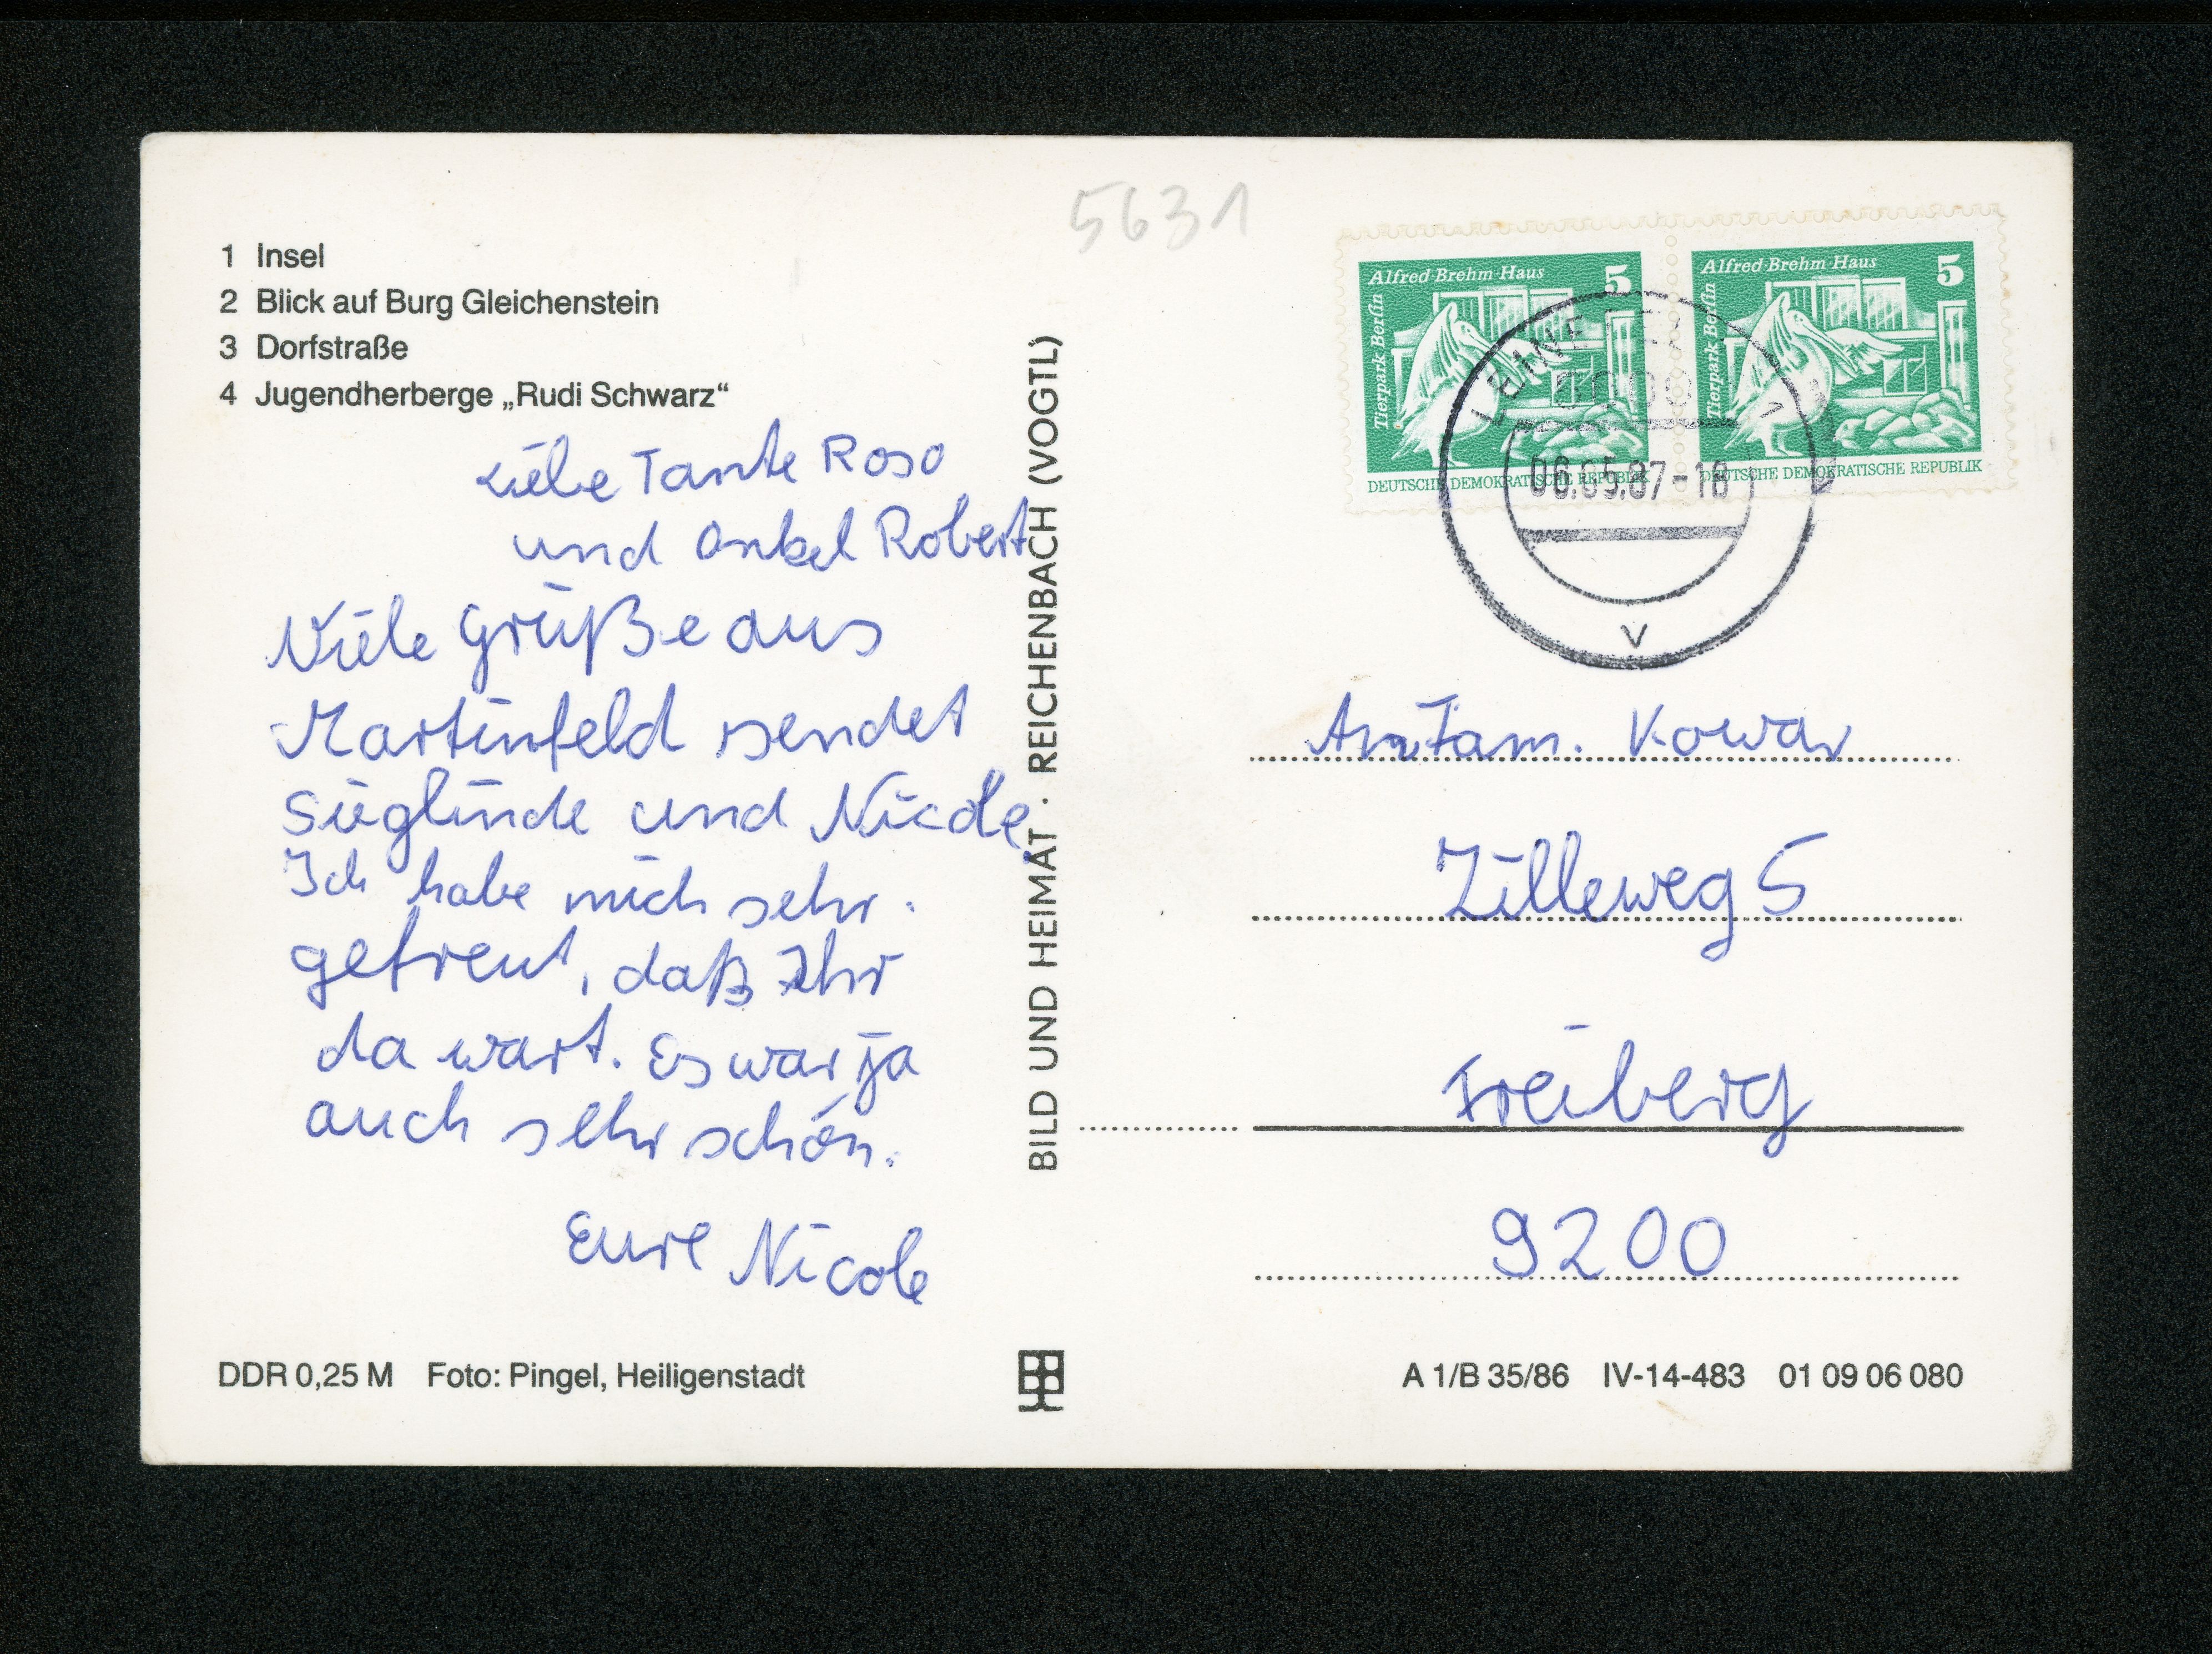 1 Insel
2 Blick auf Burg Gleichenstein
3 Dorfstraße
4 Jugendherberge „Rudi Schwarz“
Liebe Tante Rosa
und Onkel Robert
Viele Grüße aus
Martinfeld sendet
Sieglinde und Nicole.
Ich habe mich sehr
gefreut, daß Ihr
da wart. Es war ja
auch sehr schön.
Eure Nicole
DDR 0,25 M Foto: Pingel, Heiligenstadt
BILD UND HEIMAT · REICHENBACH (VOGTL)
5631
Alfred-Brehm-Haus 5
Tierpark Berlin
DEUTSCHE DEMOKRATISCHE REPUBLIK
Alfred-Brehm-Haus 5
Tierpark Berlin
DEUTSCHE DEMOKRATISCHE REPUBLIK
06.05.87-18
v
An Fam. Kowar
Zilleweg 5
Freiberg
9200
A 1/B 35/86 IV-14-483 01 09 06 080